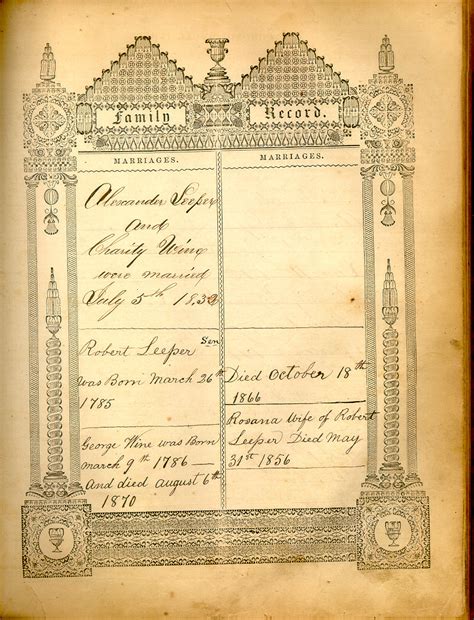 Family Record.
MARRIAGES.
MARRIAGES.
Alexander Leeper
and
Charity Wine
were married
July 5th 183
Robert Leeper Sen
was Born March 26th
1785
George Wine was Born
march 9th 1786
And died august 6th
1870
Died October 18th
1866
Rosana Wife of Robert
Leeper Died May
31st 1856